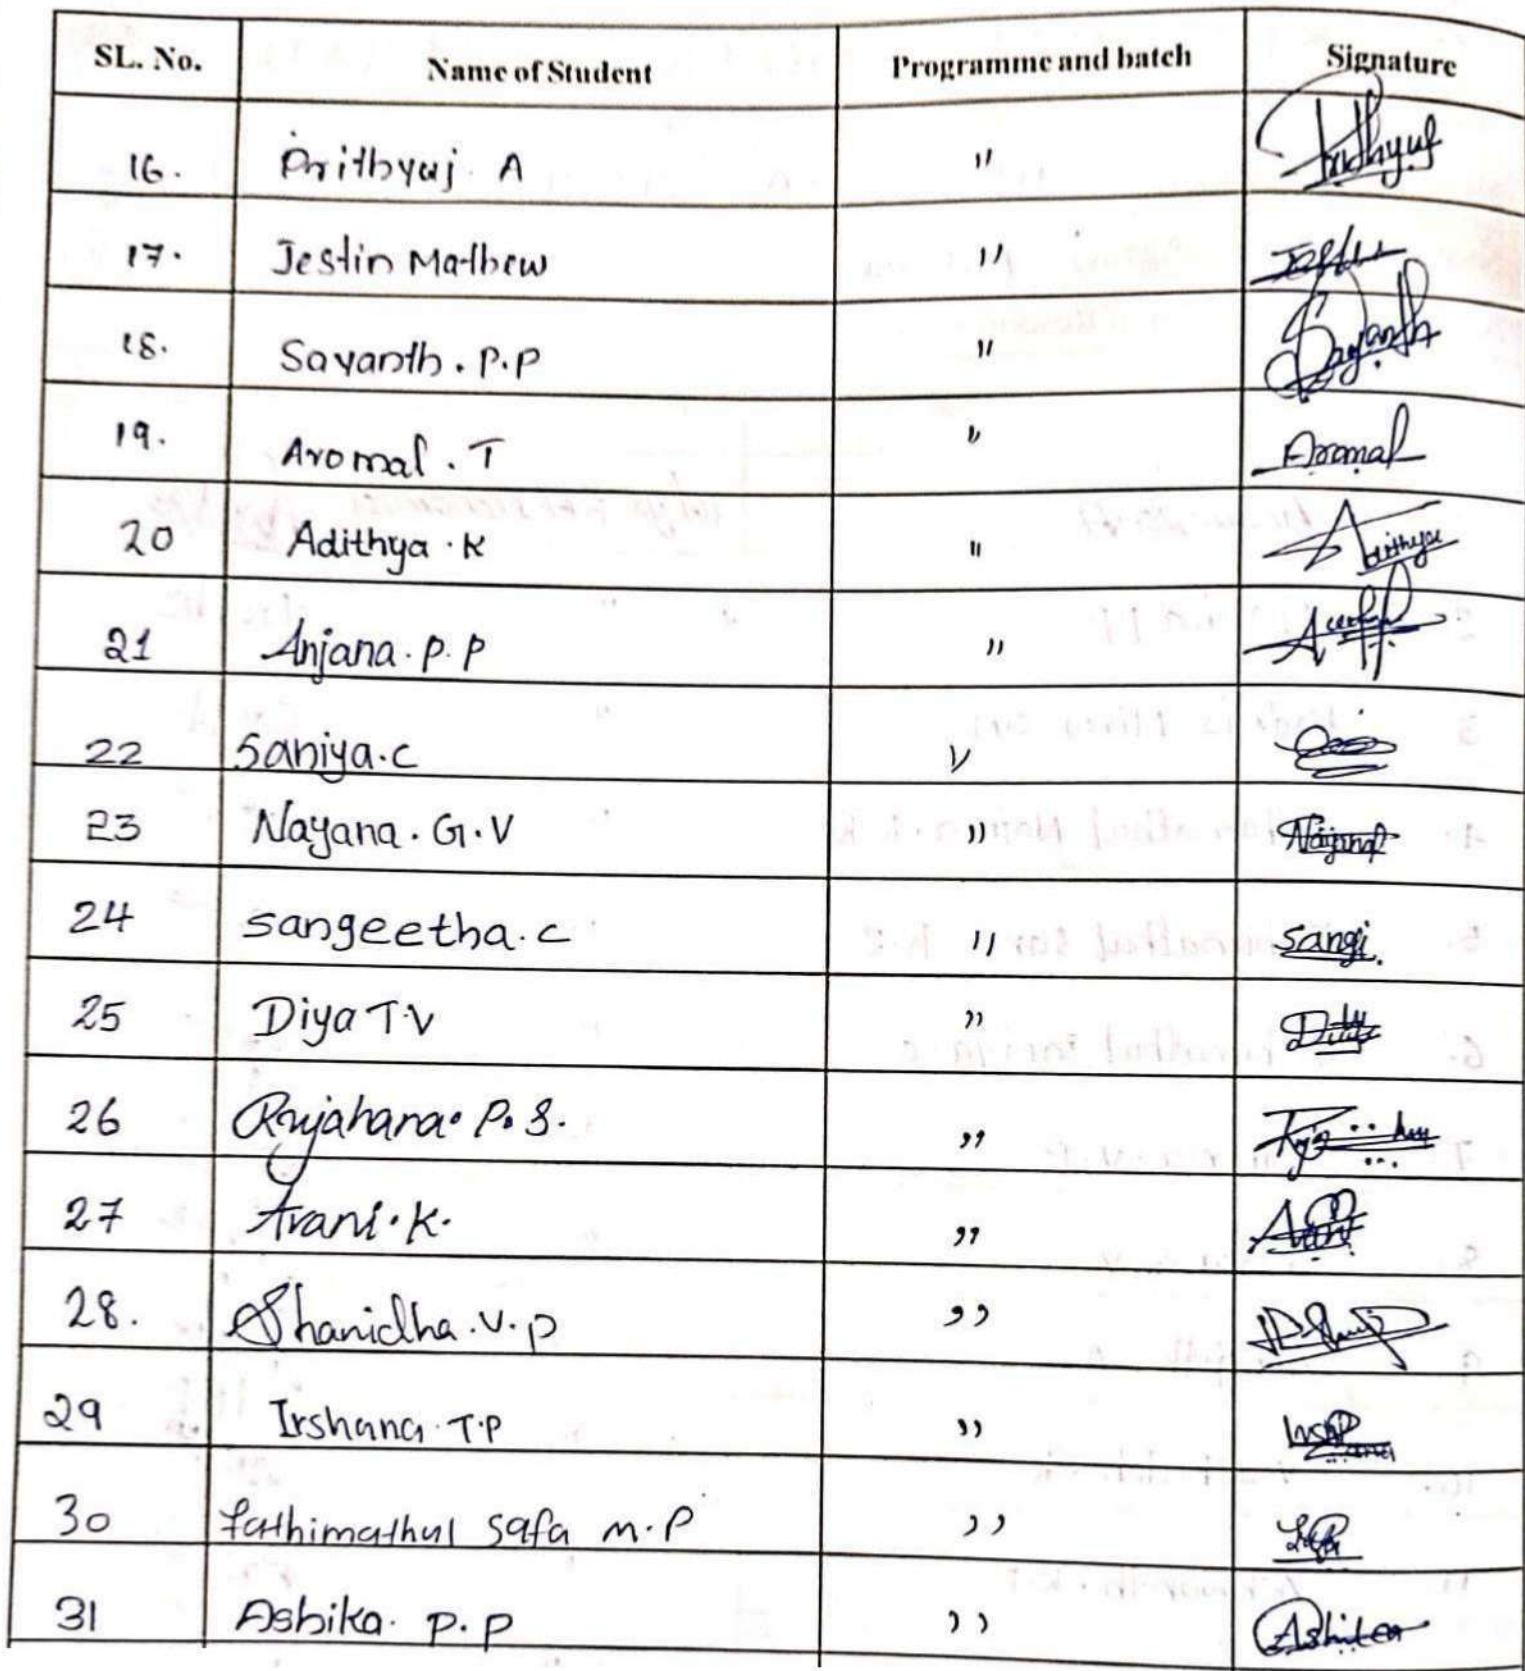 SL. No. Name of Student Programme and batch Signature
16. Prithyuj A "
17. Jestin Mathew "
18. Sayanth . P.P " Sayanth
19. Aromal . T " Aromal
20 Adithya . K "
21 Anjana . P. P "
22 Saniya . C "
23 Nayana . G . V " Nayana
24 sangeetha . c " sangi
25 Diya T.V " Diya
26 Rujahana . P. S. "
27 Arani . K . "
28. Shanidha . V . P "
29 Irshana . T.P "
30 fathimathul safa m . P "
31 Ashika . P . P " Ashika